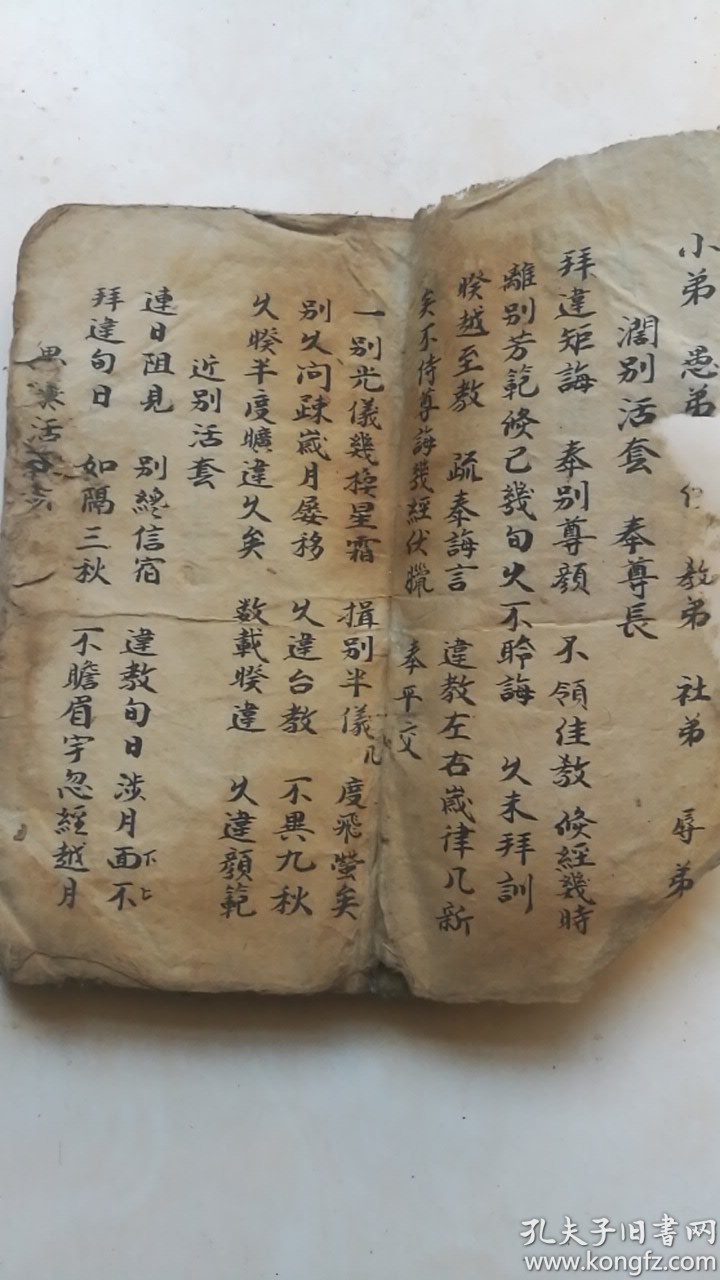 小弟 愚弟 教弟 社弟 辱弟
濶别活套 奉尊長
拜違矩誨 奉别尊顔 不領佳教 倐經幾時
離别芳範倐已幾旬 久不聆誨 久未拜訓
暌越至教 疏奉誨言 違教左右嵗律几新
矣不侍尊誨幾經伏臘 奉平交
一别光儀幾換星霜 揖别半儀几度飛螢矣
别久问踈嵗月屡移 久違台教 不異九秋
久暌半度曠違久矣 数載暌違 久違顔範
近别活套
連日阻見 别終信宿 違教旬日 涉月面不
拜違旬日 如隔三秋 不瞻眉宇忽經越月
活套
孔夫子旧书网
www.kongfz.com